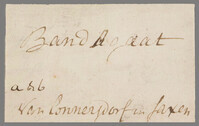 Band Agaat
a 8 6
Van Connersdorf in Saxen